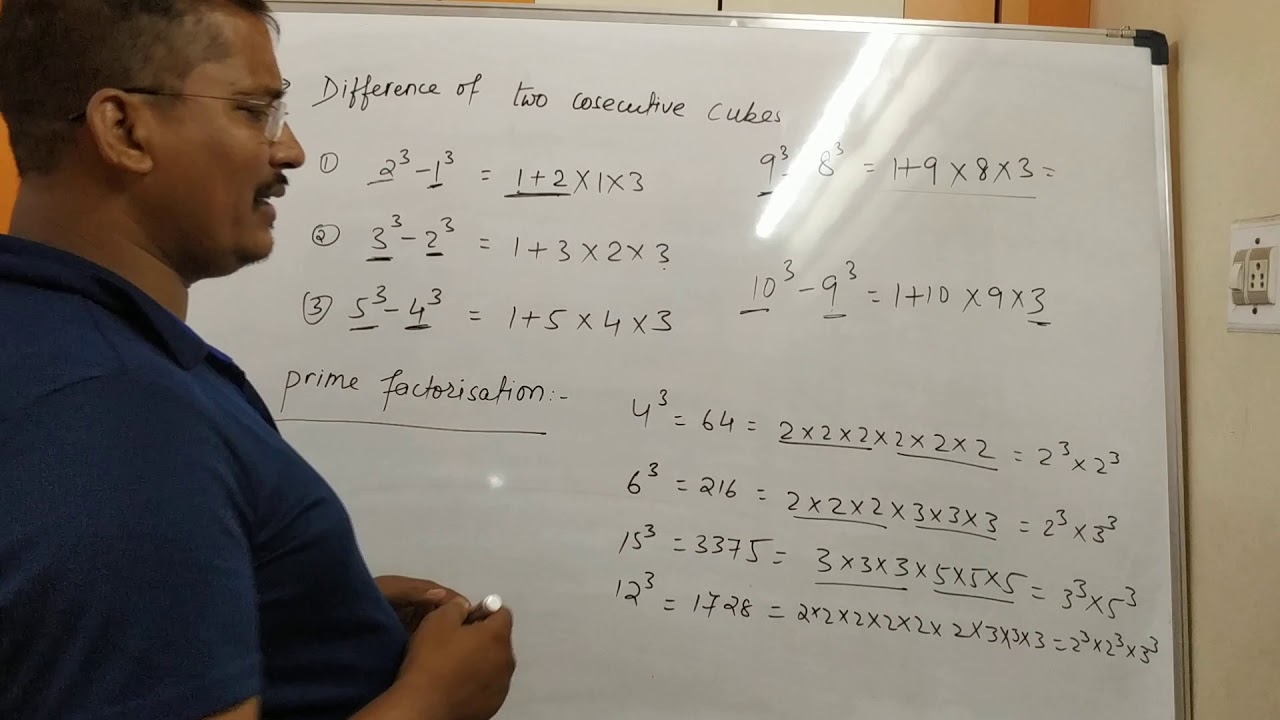 Difference of two cosecutive cubes
① 2³ - 1³ = 1+2 × 1 × 3
② 3³ - 2³ = 1 + 3 × 2 × 3
③ 5³ - 4³ = 1 + 5 × 4 × 3
9³ - 8³ = 1+9 × 8 × 3 =
10³ - 9³ = 1+10 × 9 × 3
prime factorisation:-
4³ = 64 = 2×2×2×2×2×2 = 2³ × 2³
6³ = 216 = 2×2×2×3×3×3 = 2³ × 3³
15³ = 3375 = 3×3×3×5×5×5 = 3³ × 5³
12³ = 1728 = 2×2×2×2×2×2×3×3×3 = 2³×2³×3³